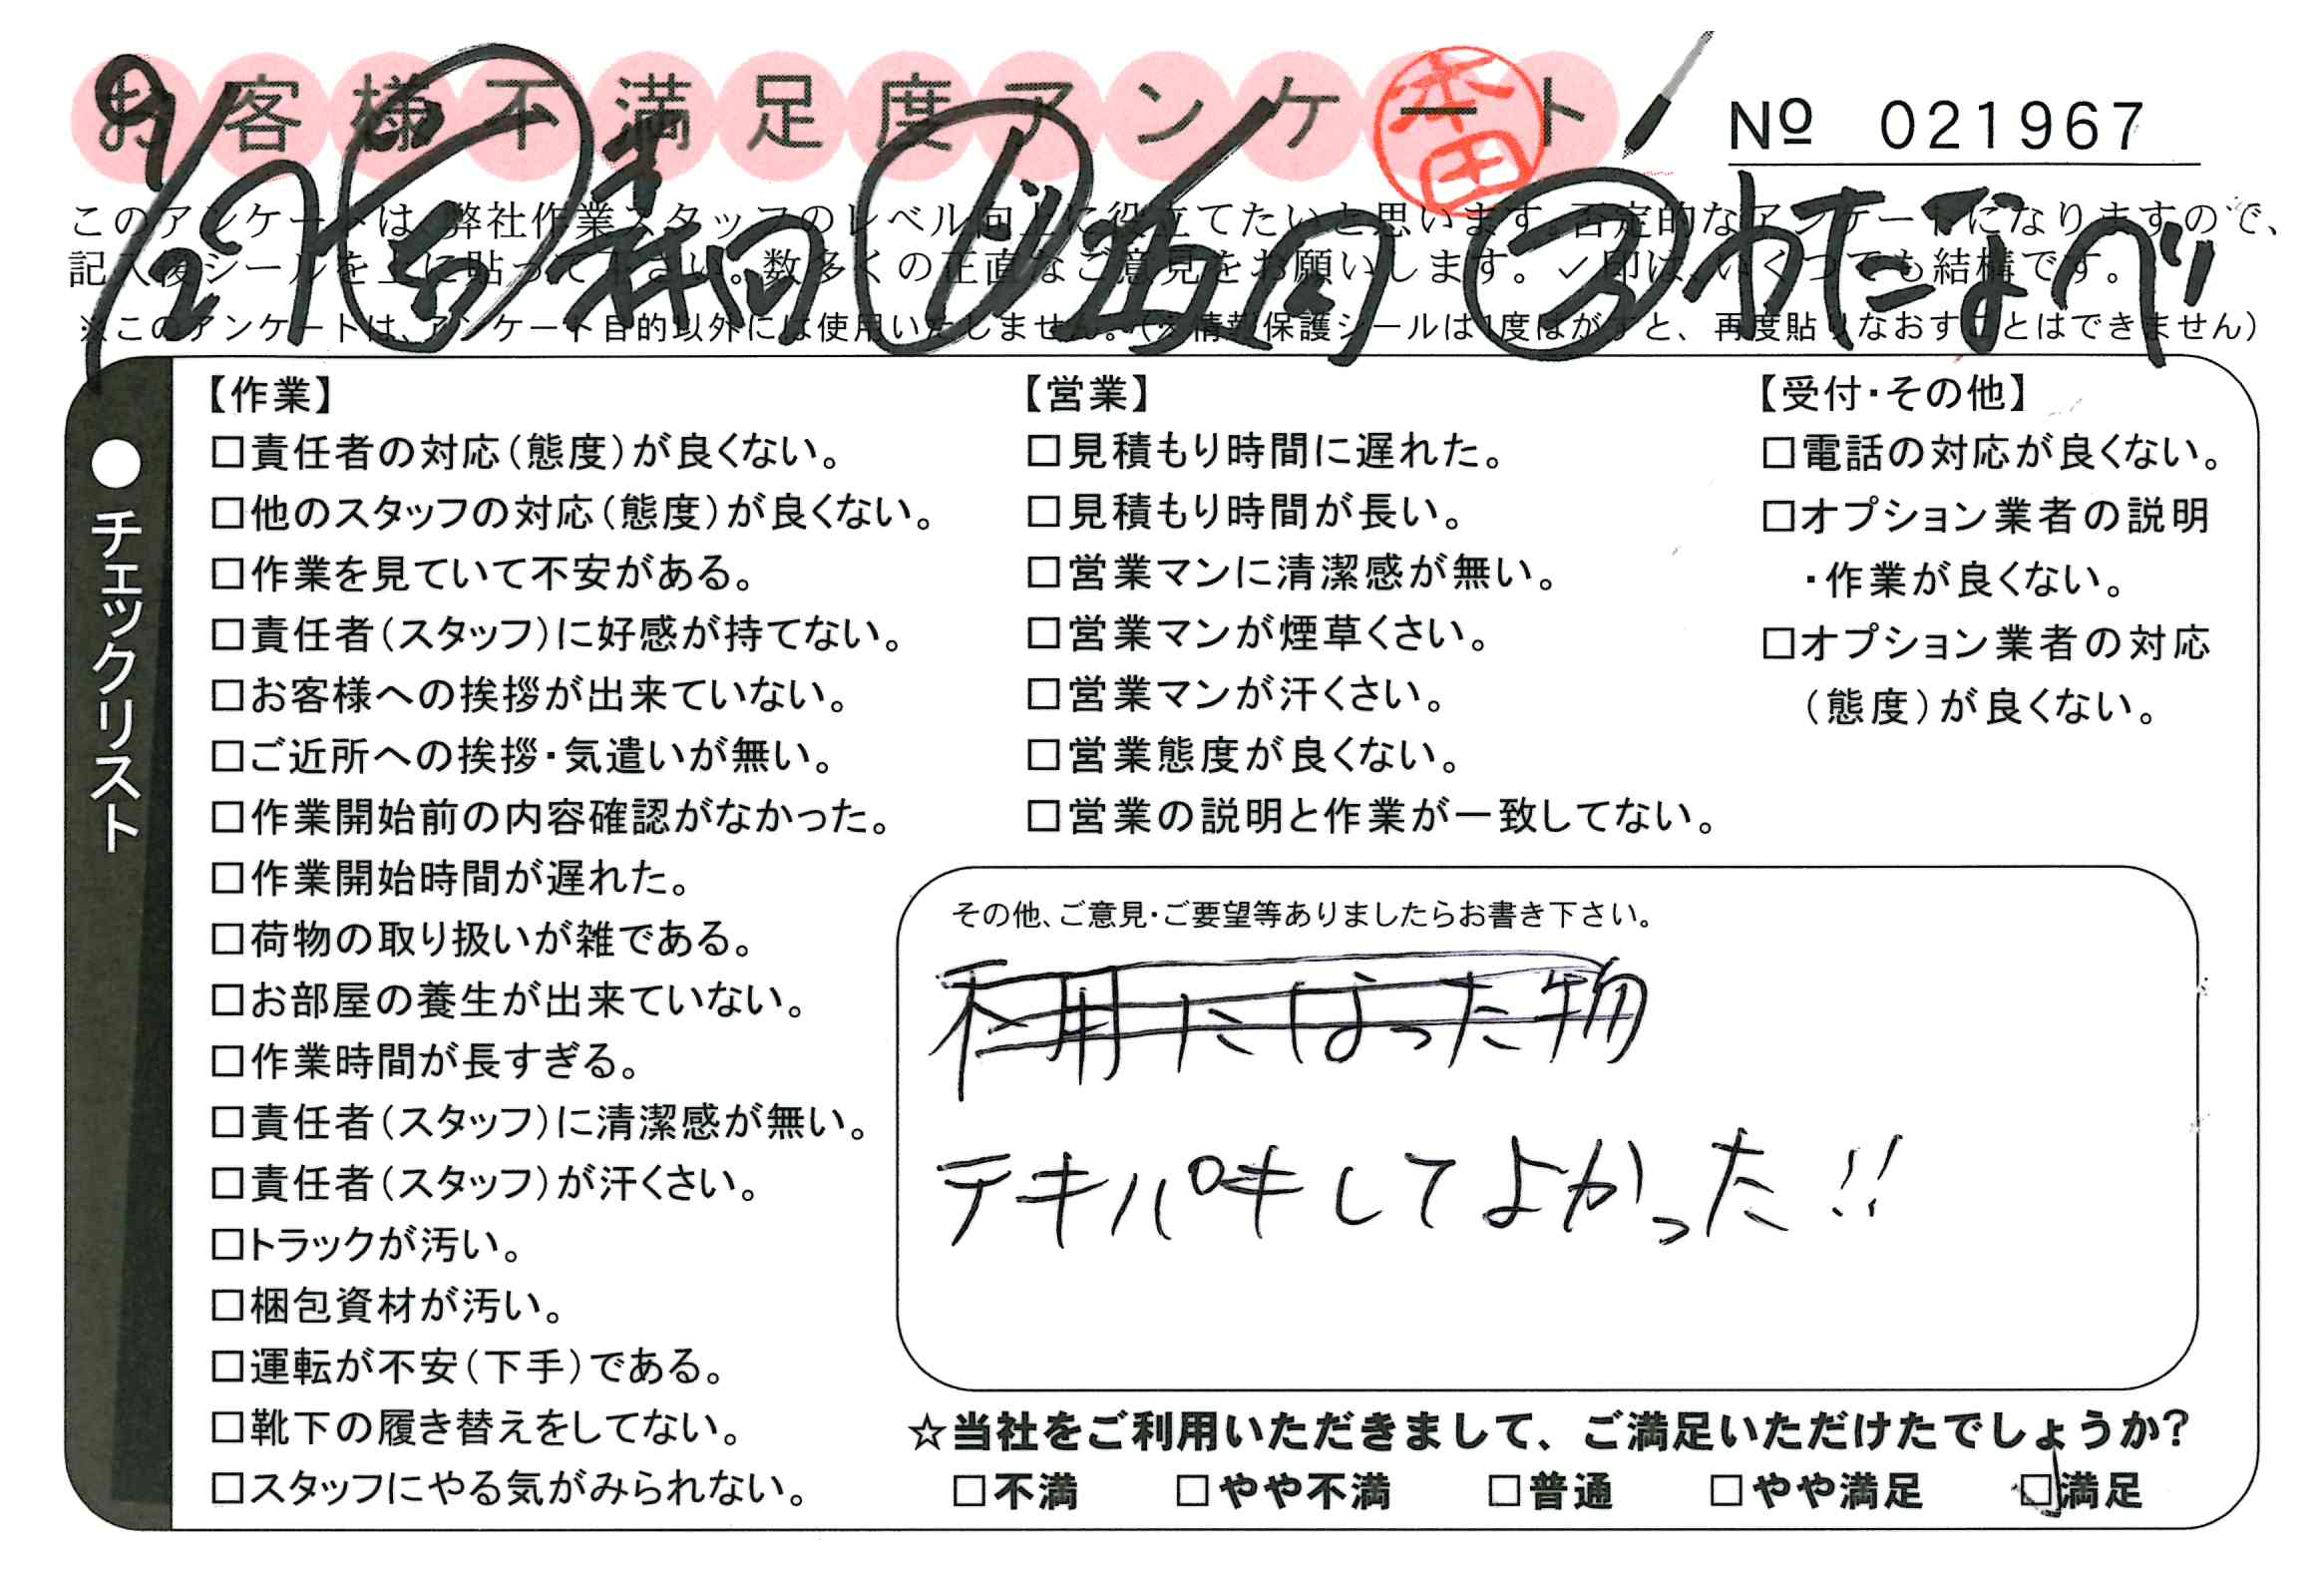 お客様不満足度アンケート
本田
Nº 021967
9/27
わたなべ
このアンケートは、弊社作業スタッフのレベル向上に役立てたいと思います。否定的なアンケートになりますので、
記入後シールを上に貼って下さい。数多くの正直なご意見をお願いします。✓印は、いくつでも結構です。
※このアンケートは、アンケート目的以外には使用いたしません。(※情報保護シールは1度はがすと、再度貼りなおすことはできません)
●チェックリスト
【作業】
□責任者の対応(態度)が良くない。
□他のスタッフの対応(態度)が良くない。
□作業を見ていて不安がある。
□責任者(スタッフ)に好感が持てない。
□お客様への挨拶が出来ていない。
□ご近所への挨拶・気遣いが無い。
□作業開始前の内容確認がなかった。
□作業開始時間が遅れた。
□荷物の取り扱いが雑である。
□お部屋の養生が出来ていない。
□作業時間が長すぎる。
□責任者(スタッフ)に清潔感が無い。
□責任者(スタッフ)が汗くさい。
□トラックが汚い。
□梱包資材が汚い。
□運転が不安(下手)である。
□靴下の履き替えをしてない。
□スタッフにやる気がみられない。
【営業】
□見積もり時間に遅れた。
□見積もり時間が長い。
□営業マンに清潔感が無い。
□営業マンが煙草くさい。
□営業マンが汗くさい。
□営業態度が良くない。
□営業の説明と作業が一致してない。
【受付・その他】
□電話の対応が良くない。
□オプション業者の説明
・作業が良くない。
□オプション業者の対応
(態度)が良くない。
その他、ご意見・ご要望等ありましたらお書き下さい。
テキパキしてよかった!!
☆当社をご利用いただきまして、ご満足いただけたでしょうか?
□不満 □やや不満 □普通 □やや満足 ☑満足